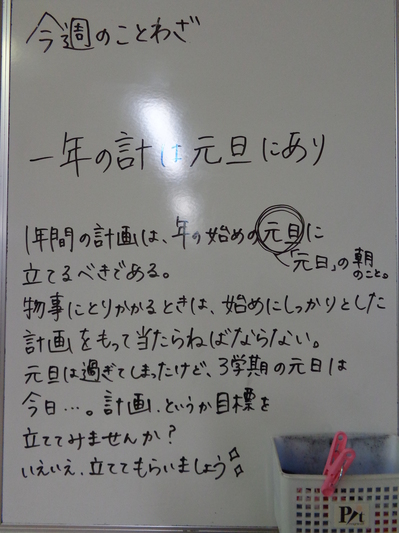 今週のことわざ
一年の計は元旦にあり
1年間の計画は、年の始めの元旦に
「元日」の朝
のこと。
立てるべきである。
物事にとりかかるときは、始めにしっかりとした
計画をもって当たらねばならない。
元旦は過ぎてしまったけど、3学期の元日は
今日…。計画、というか目標を
立ててみませんか?
いえいえ、立ててもらいましょう